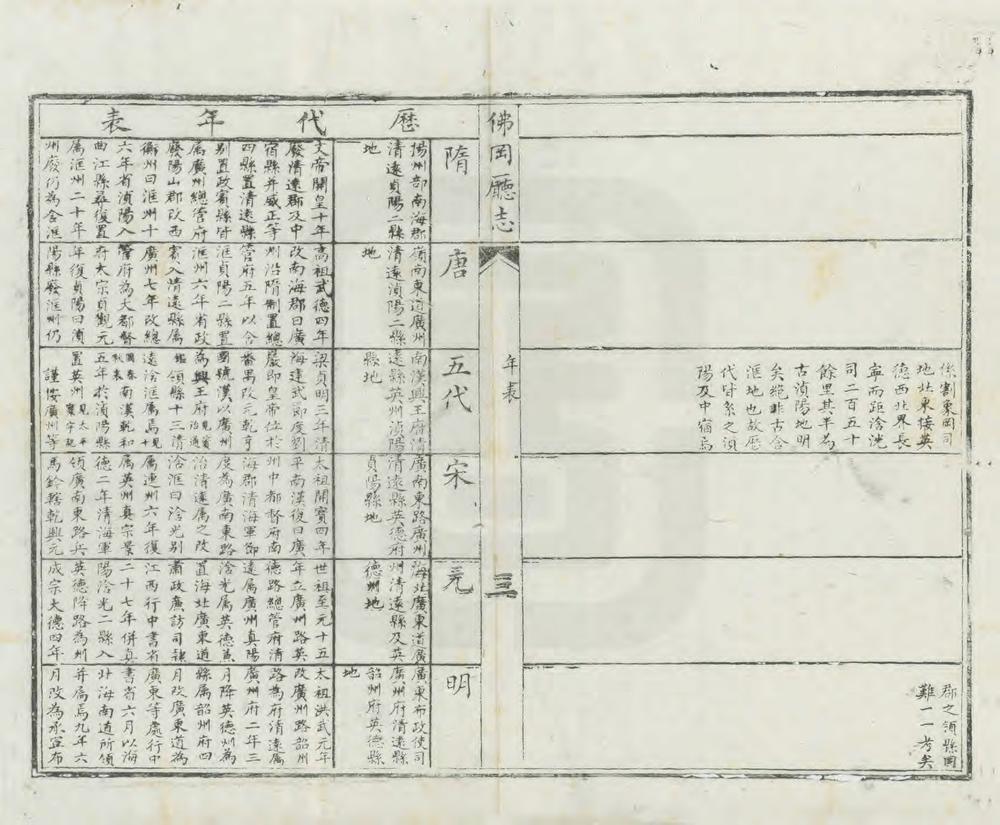 係割東岡司
地北東接英
德西北界長
寧而距浛洸
司二百五十
餘里其半為
古滇陽地明
矣絕非古含
洭地也故歷
代皆系之滇
陽及中宿焉
郡之領縣固
難一一考矣
佛岡廳志
年表
三
歷代年表
隋
揚州部南海郡
清遠貞陽二縣
地
文帝開皇十年
廢清遠郡及中
宿縣并威正等
四縣置清遠縣
別置政賓縣皆
屬廣州總管府
廢陽山郡改西
衡州曰洭州十
六年省湞陽入
曲江縣尋復置
屬洭州二十年
州廢仍為含洭
唐
嶺南東道廣州
清遠湞陽二縣
地
高祖武德四年
改南海郡曰廣
州沿隋制置總
管府五年以含
洭貞陽二縣置
洭州六年省政
賓入清遠縣屬
廣州七年改總
管府為大都督
府太宗貞觀元
年復貞陽曰湞
陽縣廢洭州仍
五代
南漢興王府清
遠縣英州湞陽
縣地
梁貞明三年清
海建武節度劉
巖即皇帝位於
番禺改元乾亨
國號漢以廣州
為興王府
領縣十三清
遠浛洭屬焉
南漢乾和
五年於湞陽縣
置英州
謹按廣州等
宋
廣南東路廣州
清遠縣英德府
貞陽縣地
太祖開寶四年
平南漢復曰廣
州中都督府南
海郡清海軍節
度為廣南東路
治清遠屬之改
浛洭曰浛光別
屬連州六年復
屬英州真宗景
德二年清海軍
領廣南東路兵
馬鈐轄乾興元
元
海北廣東道廣
州清遠縣及英
德州地
世祖至元十五
年立廣州路英
德路總管府清
遠屬廣州真陽
浛光屬英德焉
置海北廣東道
肅政廉訪司隸
江西行中書省
二十七年併真
陽浛光二縣入
英德降路為州
成宗大德四年
明
廣東布政使司
廣州府清遠縣
韶州府英德縣
地
太祖洪武元年
改廣州路韶州
路為府清遠屬
廣州府二年三
月降英德州為
縣屬韶州府四
月改廣東道為
廣東等處行中
書省六月以海
北海南道所領
并屬焉九年六
月改為承宣布